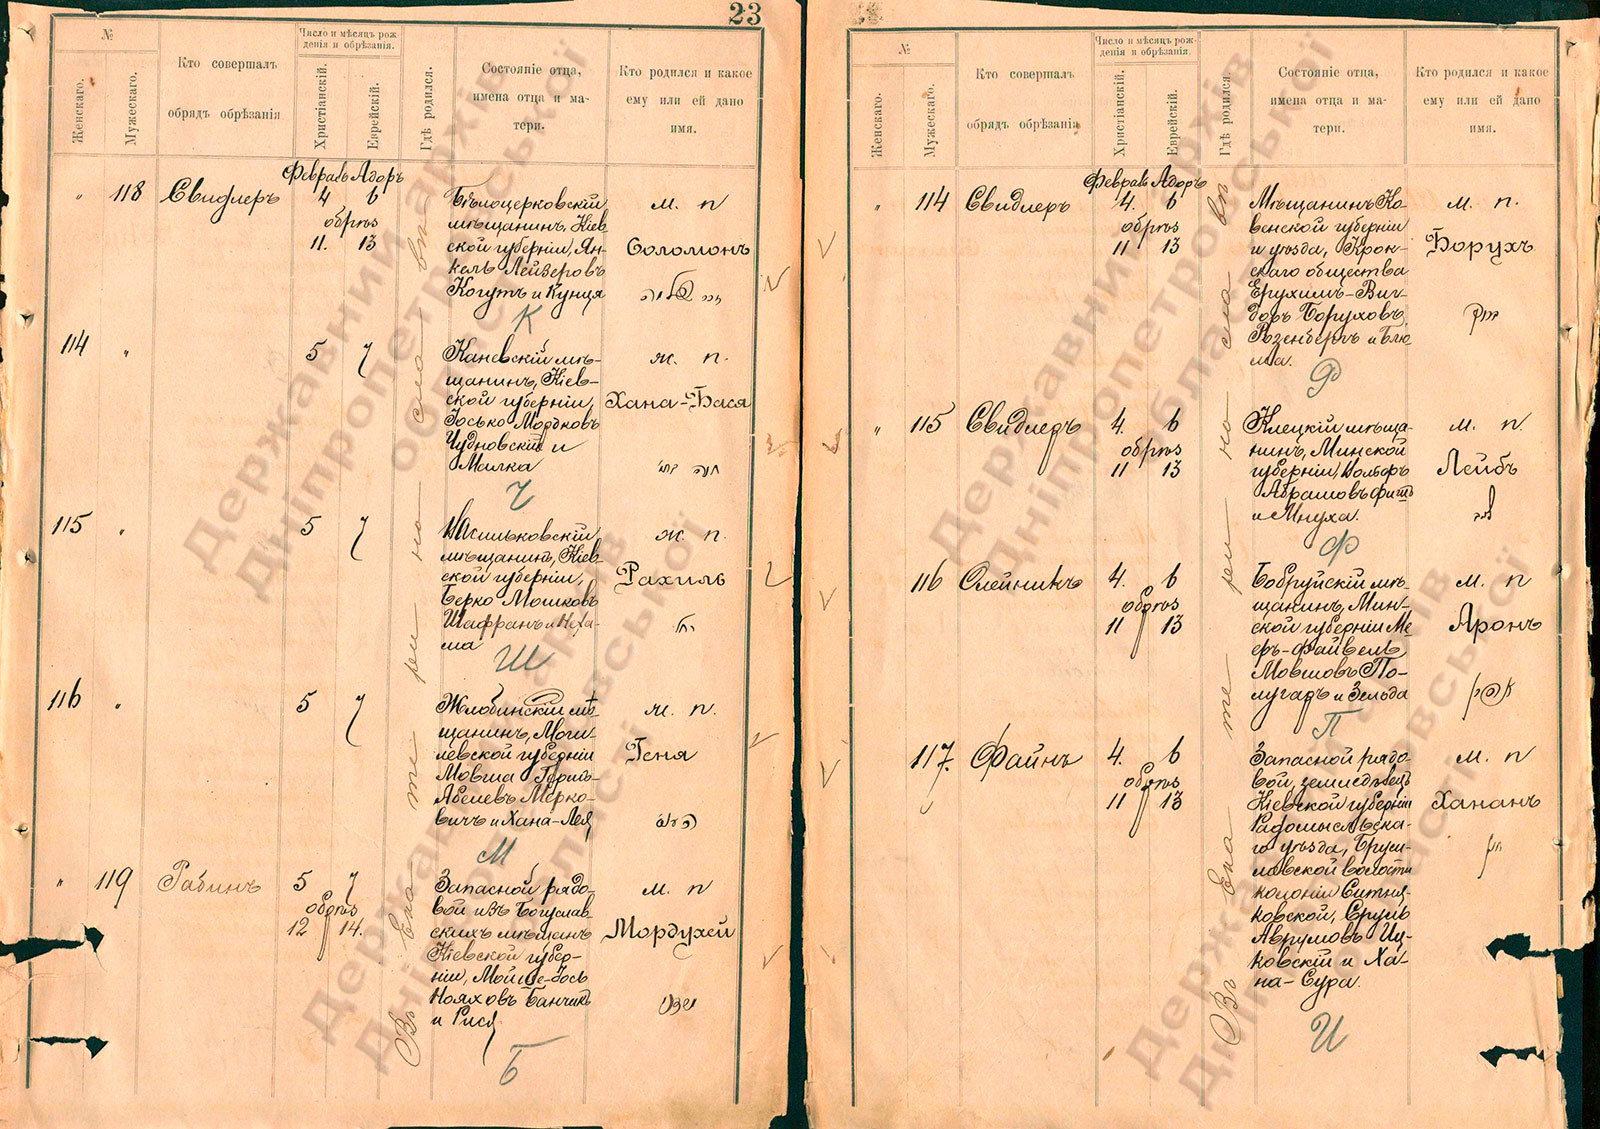 23
№
Женскаго.
Мужескаго.
Кто совершалъ
обрядъ обрѣзанія
Число и мѣсяцъ рож-
денія и обрѣзанія.
Христіанскій.
Еврейскій.
Гдѣ родился.
Состояніе отца,
имена отца и ма-
тери.
Кто родился и какое
ему или ей дано
имя.
Февраль Адоръ
" 118 Свидлеръ 4 6
обрѣз
11. 13
Бѣлоцерковскій
мѣщанинъ, Кіев-
ской губерніи, Ян-
кель Лейзеровъ
Когутъ и Куня
К
м. п
Соломонъ
114 " 5 7
Каневскій мѣ-
щанинъ, Кіев-
ской губерніи,
Іосько Мордковъ
Чудновскій и
Малка
Ч
ж. п.
Хана-Бася
115 " 5 7
мѣщанинъ, Кіев-
ской губерніи,
Берко Мошковъ
Шафранъ и Неха-
ма
Ш
ж. п.
Рахиль
רחל
116 " 5 7
Жлобинскій мѣ-
щанинъ, Моги-
левской губерніи
Мовша
Абелевъ Мерко-
вичъ и Хана-Лея
М
ж. п.
Геня
" 119 Рабинъ 5 7
обрѣз
12 14.
Запасной рядо-
вой изъ Богуслав-
скихъ мѣщанъ
Кіевской губер-
ніи, Мойше-Іось
Нояховъ Банчикъ
и Рися
Б
м. п
Мордухей
Въ Екатеринославѣ
№
Женскаго.
Мужескаго.
Кто совершалъ
обрядъ обрѣзанія
Число и мѣсяцъ рож-
денія и обрѣзанія.
Христіанскій.
Еврейскій.
Гдѣ родился.
Состояніе отца,
имена отца и ма-
тери.
Кто родился и какое
ему или ей дано
имя.
Февраль Адоръ
" 114 Свидлеръ 4. 6
обрѣз
11 13
Мѣщанинъ Ко-
венской губерніи
и уѣзда, Крон-
скаго общества
Ерухимъ-Виг-
доръ Боруховъ
Розенбергъ и Блю-
ма.
Р
м. п.
Борухъ
ברוך
" 115 Свидлеръ 4. 6
обрѣз
11 13
Клецкій мѣща-
нинъ, Минской
губерніи, Вольфъ
Абрамовъ
и Мнуха.
Ф
м. п
Лейбъ
116 Олейникъ 4. 6
обрѣз
11 13
Бобруйскій мѣ-
щанинъ, Мин-
ской губерніи Ме-
еръ-Файвель
Мовшовъ По-
лугаръ и Зельда
П
м. п
Аронъ
117. Файнъ 4. 6
обрѣз
11 13
Запасной рядо-
вой, земледѣлецъ
Кіевской губерніи
Радомысльска-
го уѣзда, Бруси-
ловской волости
колоніи Ситня-
ковской, Сруль
Аврумовъ Иц-
ковскій и Ха-
на-Сура.
И
м. п
Хананъ
Въ Екатеринославѣ
Державний архів
Дніпропетровської
області